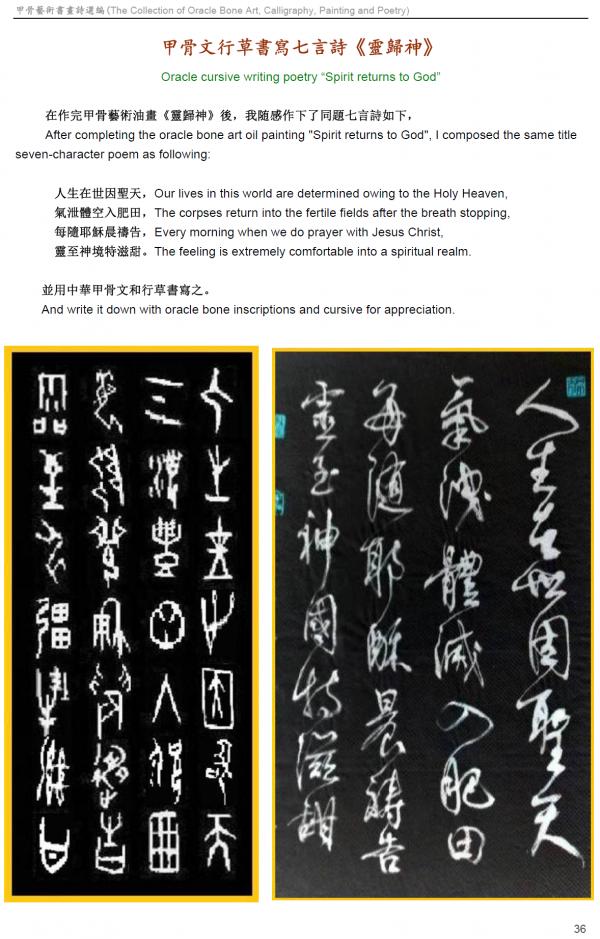 甲骨藝術書畫詩選編(The Collection of Oracle Bone Art, Calligraphy, Painting and Poetry)
甲骨文行草書寫七言詩《靈歸神》
Oracle cursive writing poetry “Spirit returns to God”
在作完甲骨藝術油畫《靈歸神》後，我隨感作下了同題七言詩如下，
After completing the oracle bone art oil painting "Spirit returns to God", I composed the same title
seven-character poem as following:
人生在世因聖天，Our lives in this world are determined owing to the Holy Heaven,
氣泄體空入肥田，The corpses return into the fertile fields after the breath stopping,
每隨耶穌晨禱告，Every morning when we do prayer with Jesus Christ,
靈至神境特滋甜。The feeling is extremely comfortable into a spiritual realm.
並用中華甲骨文和行草書寫之。
And write it down with oracle bone inscriptions and cursive for appreciation.
人生在世因聖天
氣洩體滅入肥田
每隨耶穌晨禱告
靈至神國特滋甜
36